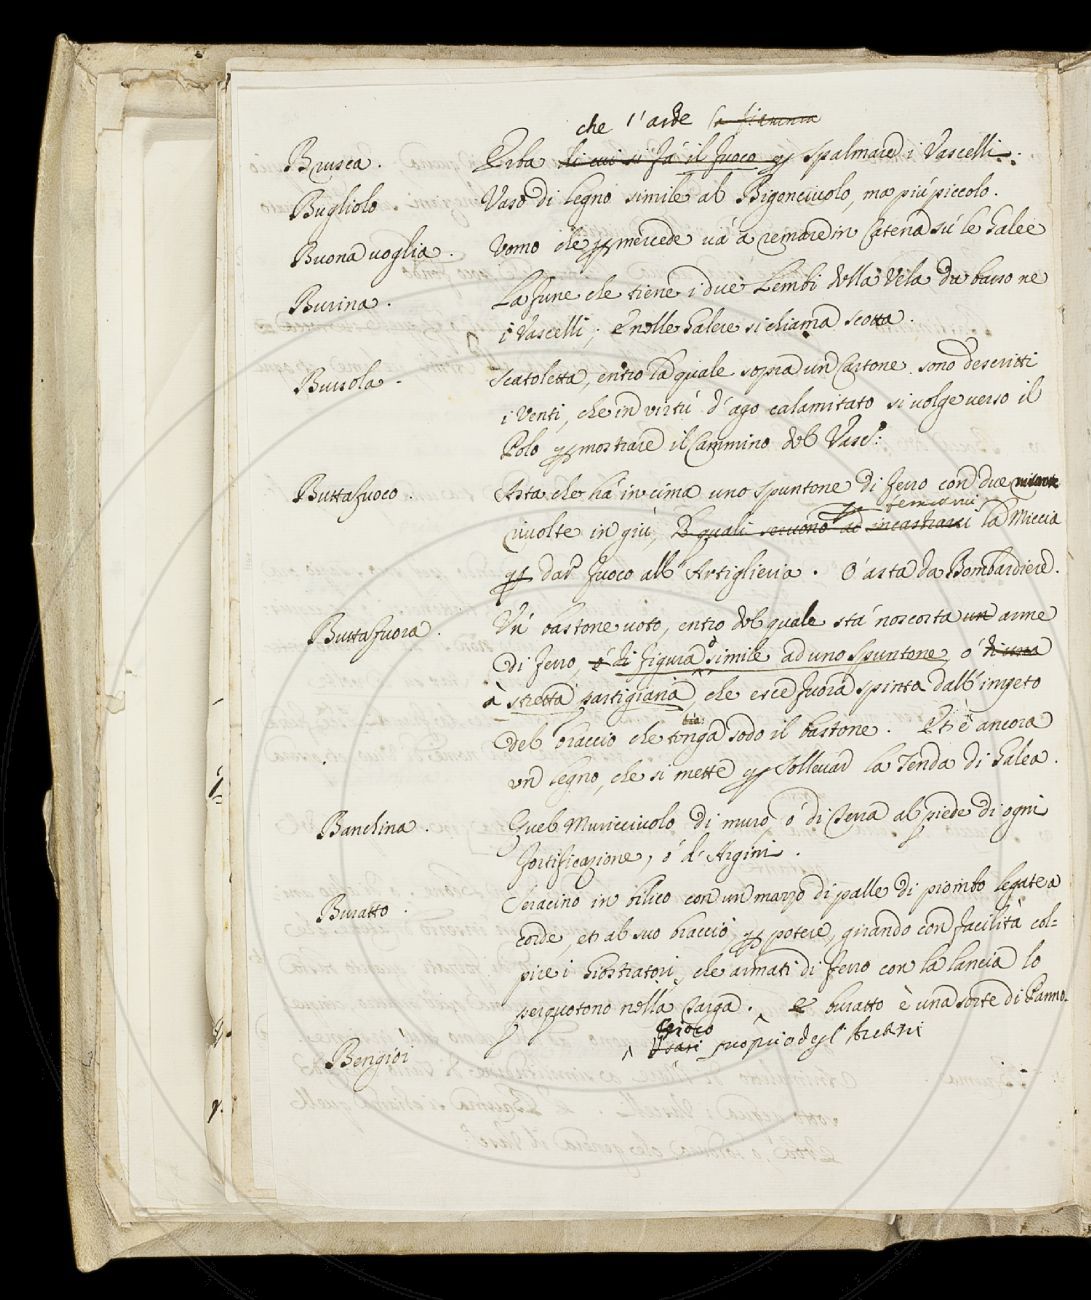 che l'arde la fiamma
Brusca. Erba di cui si fà il fuoco per spalmare i Vascelli.
Bugliolo Vaso di legno simile al Bigonciuolo, ma più piccolo.
Buonavoglia. Vomo che per mercede và à remare in Catena sù le Galee
Burina. La fune che tiene i due Lembi della Vela da basso ne
i Vascelli; E nelle Galere si chiama scotta.
Bussola. Scatoletta, entro la quale sopra un Cartone sono descritti
i Venti, che in virtù d'ago calamitato si volge verso il
Polo per mostrare il Cammino del Vasc:
Buttafuoco. Asta che hà in cima uno spuntone di ferro con due
rivolte in giù, E quali seruono ad incastrarsi la Miccia
per dar fuoco all'Artiglieria. O' asta da Bombardiere.
Buttafuora. Vn bastone uoto, entro del quale stà nascosta un arme
di ferro, è di figura simile ad uno spuntone, ò di una
à stretta partigiana, che esce fuora spinta dall'impeto
del braccio che tenga sodo il bastone. Et è ancora
un legno, che si mette per sollevar la Tenda di Galea.
Banchina. Quel Muricciuolo di muro ò di Terra al piede di ogni
fortificazione, ò d'Argini.
Buratto. Seracino in bilico con un mazzo di palle di piombo legate a
corde, et al suo braccio per potere, girando con facilità col-
pire i Giostratori, che armati di ferro con la lancia lo
perquotono nella Targa. E buratto è una sorte di Panno.
Giuoco
Bengiôi proprio degl'